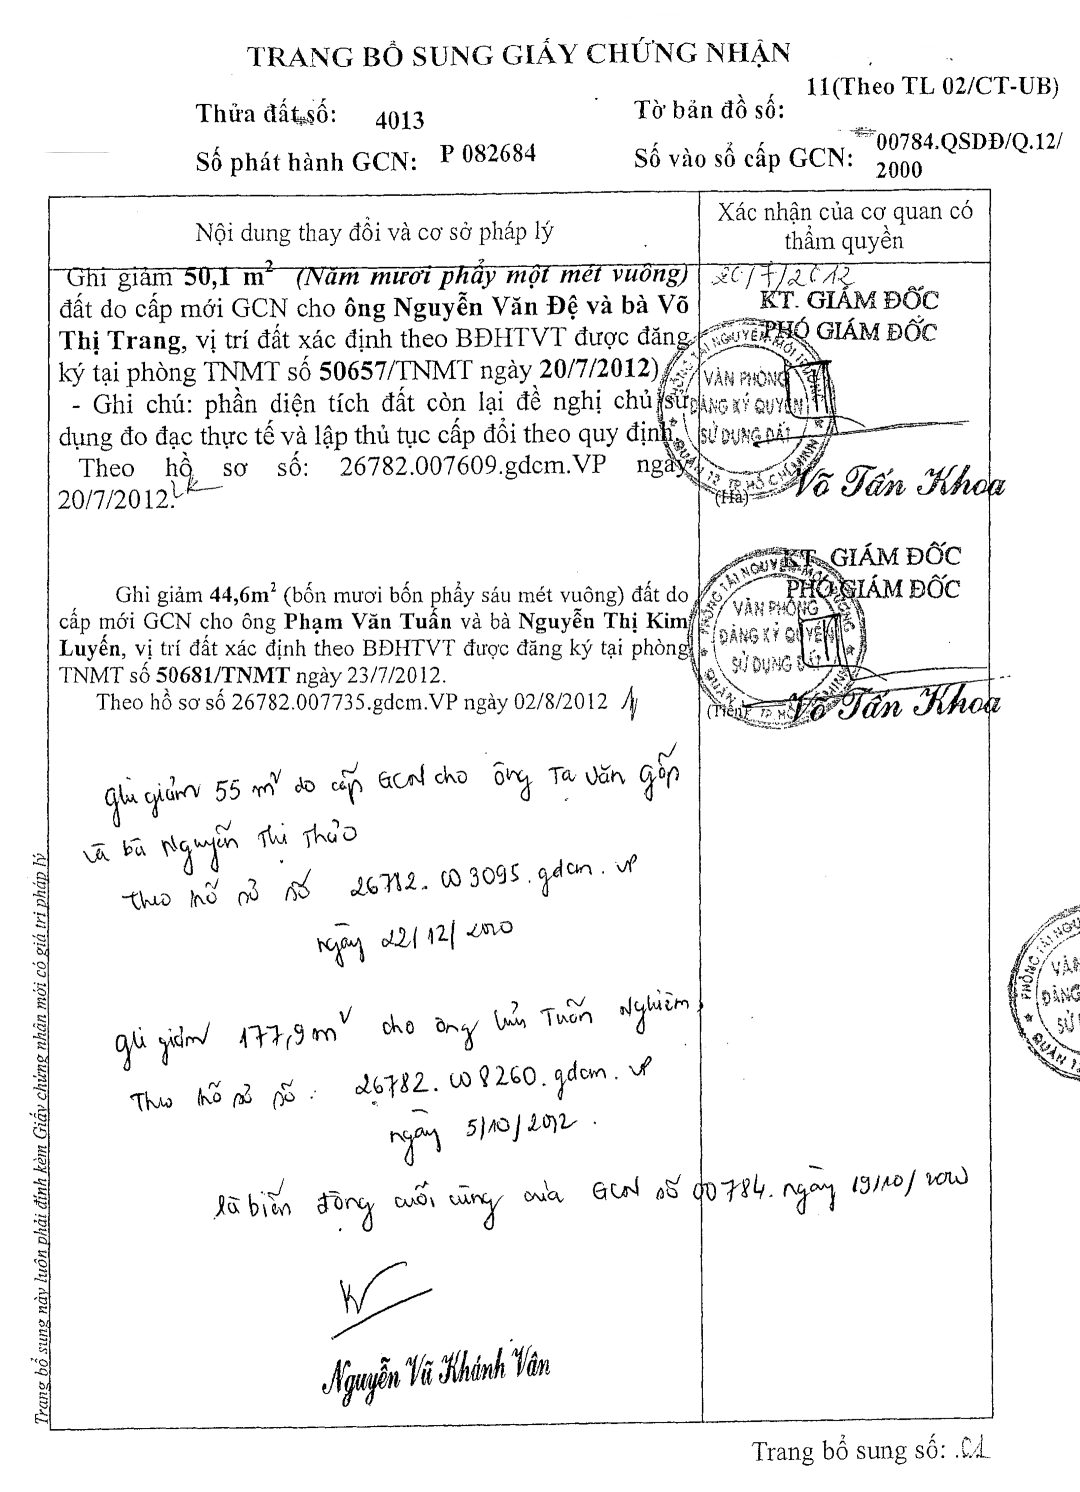 TRANG BỔ SUNG GIẤY CHỨNG NHẬN
Thửa đất số: 4013
Tờ bản đồ số: 11(Theo TL 02/CT-UB)
Số phát hành GCN: P 082684
Số vào sổ cấp GCN: 00784.QSDĐ/Q.12/
2000
Nội dung thay đổi và cơ sở pháp lý
Xác nhận của cơ quan có
thẩm quyền
Ghi giảm 50,1 m² (Năm mươi phẩy một mét vuông)
đất do cấp mới GCN cho ông Nguyễn Văn Đệ và bà Võ
Thị Trang, vị trí đất xác định theo BĐHTVT được đăng
ký tại phòng TNMT số 50657/TNMT ngày 20/7/2012)
- Ghi chú: phần diện tích đất còn lại đề nghị chủ sử
dụng đo đạc thực tế và lập thủ tục cấp đổi theo quy định.
Theo hồ sơ số: 26782.007609.gdcm.VP ngày
20/7/2012.
20/7/2012
KT. GIÁM ĐỐC
PHÓ GIÁM ĐỐC
PHÒNG TÀI NGUYÊN MÔI TRƯỜNG
VĂN PHÒNG
ĐĂNG KÝ QUYỀN
SỬ DỤNG ĐẤT
QUẬN 12 TP.HỒ CHÍ MINH
(Hà)
Võ Tấn Khoa
Ghi giảm 44,6m² (bốn mươi bốn phẩy sáu mét vuông) đất do
cấp mới GCN cho ông Phạm Văn Tuấn và bà Nguyễn Thị Kim
Luyến, vị trí đất xác định theo BĐHTVT được đăng ký tại phòng
TNMT số 50681/TNMT ngày 23/7/2012.
Theo hồ sơ số 26782.007735.gdcm.VP ngày 02/8/2012
KT. GIÁM ĐỐC
PHÓ GIÁM ĐỐC
PHÒNG TÀI NGUYÊN MÔI TRƯỜNG
VĂN PHÒNG
ĐĂNG KÝ QUYỀN
SỬ DỤNG ĐẤT
QUẬN 12 TP.HỒ CHÍ MINH
(Tiên)
Võ Tấn Khoa
Ghi giảm 55 m² do cấp GCN cho ông Tạ Văn Gốp
và bà Nguyễn Thị Thảo
Theo hồ sơ số 26782.003095.gdcm.VP
ngày 22/12/2010
Ghi giảm 177,9m² cho ông Tuấn Nghiêm
Theo hồ sơ số: 26782.008260.gdcm.VP
ngày 5/10/2012.
là biến động cuối cùng của GCN số 00784. ngày 19/10/2000
Nguyễn Vũ Khánh Vân
Trang bổ sung này luôn phải đính kèm Giấy chứng nhận mới có giá trị pháp lý
PHÒNG TÀI NGU
VĂN
ĐĂNG
SỬ D
QUẬN 12
Trang bổ sung số: .01